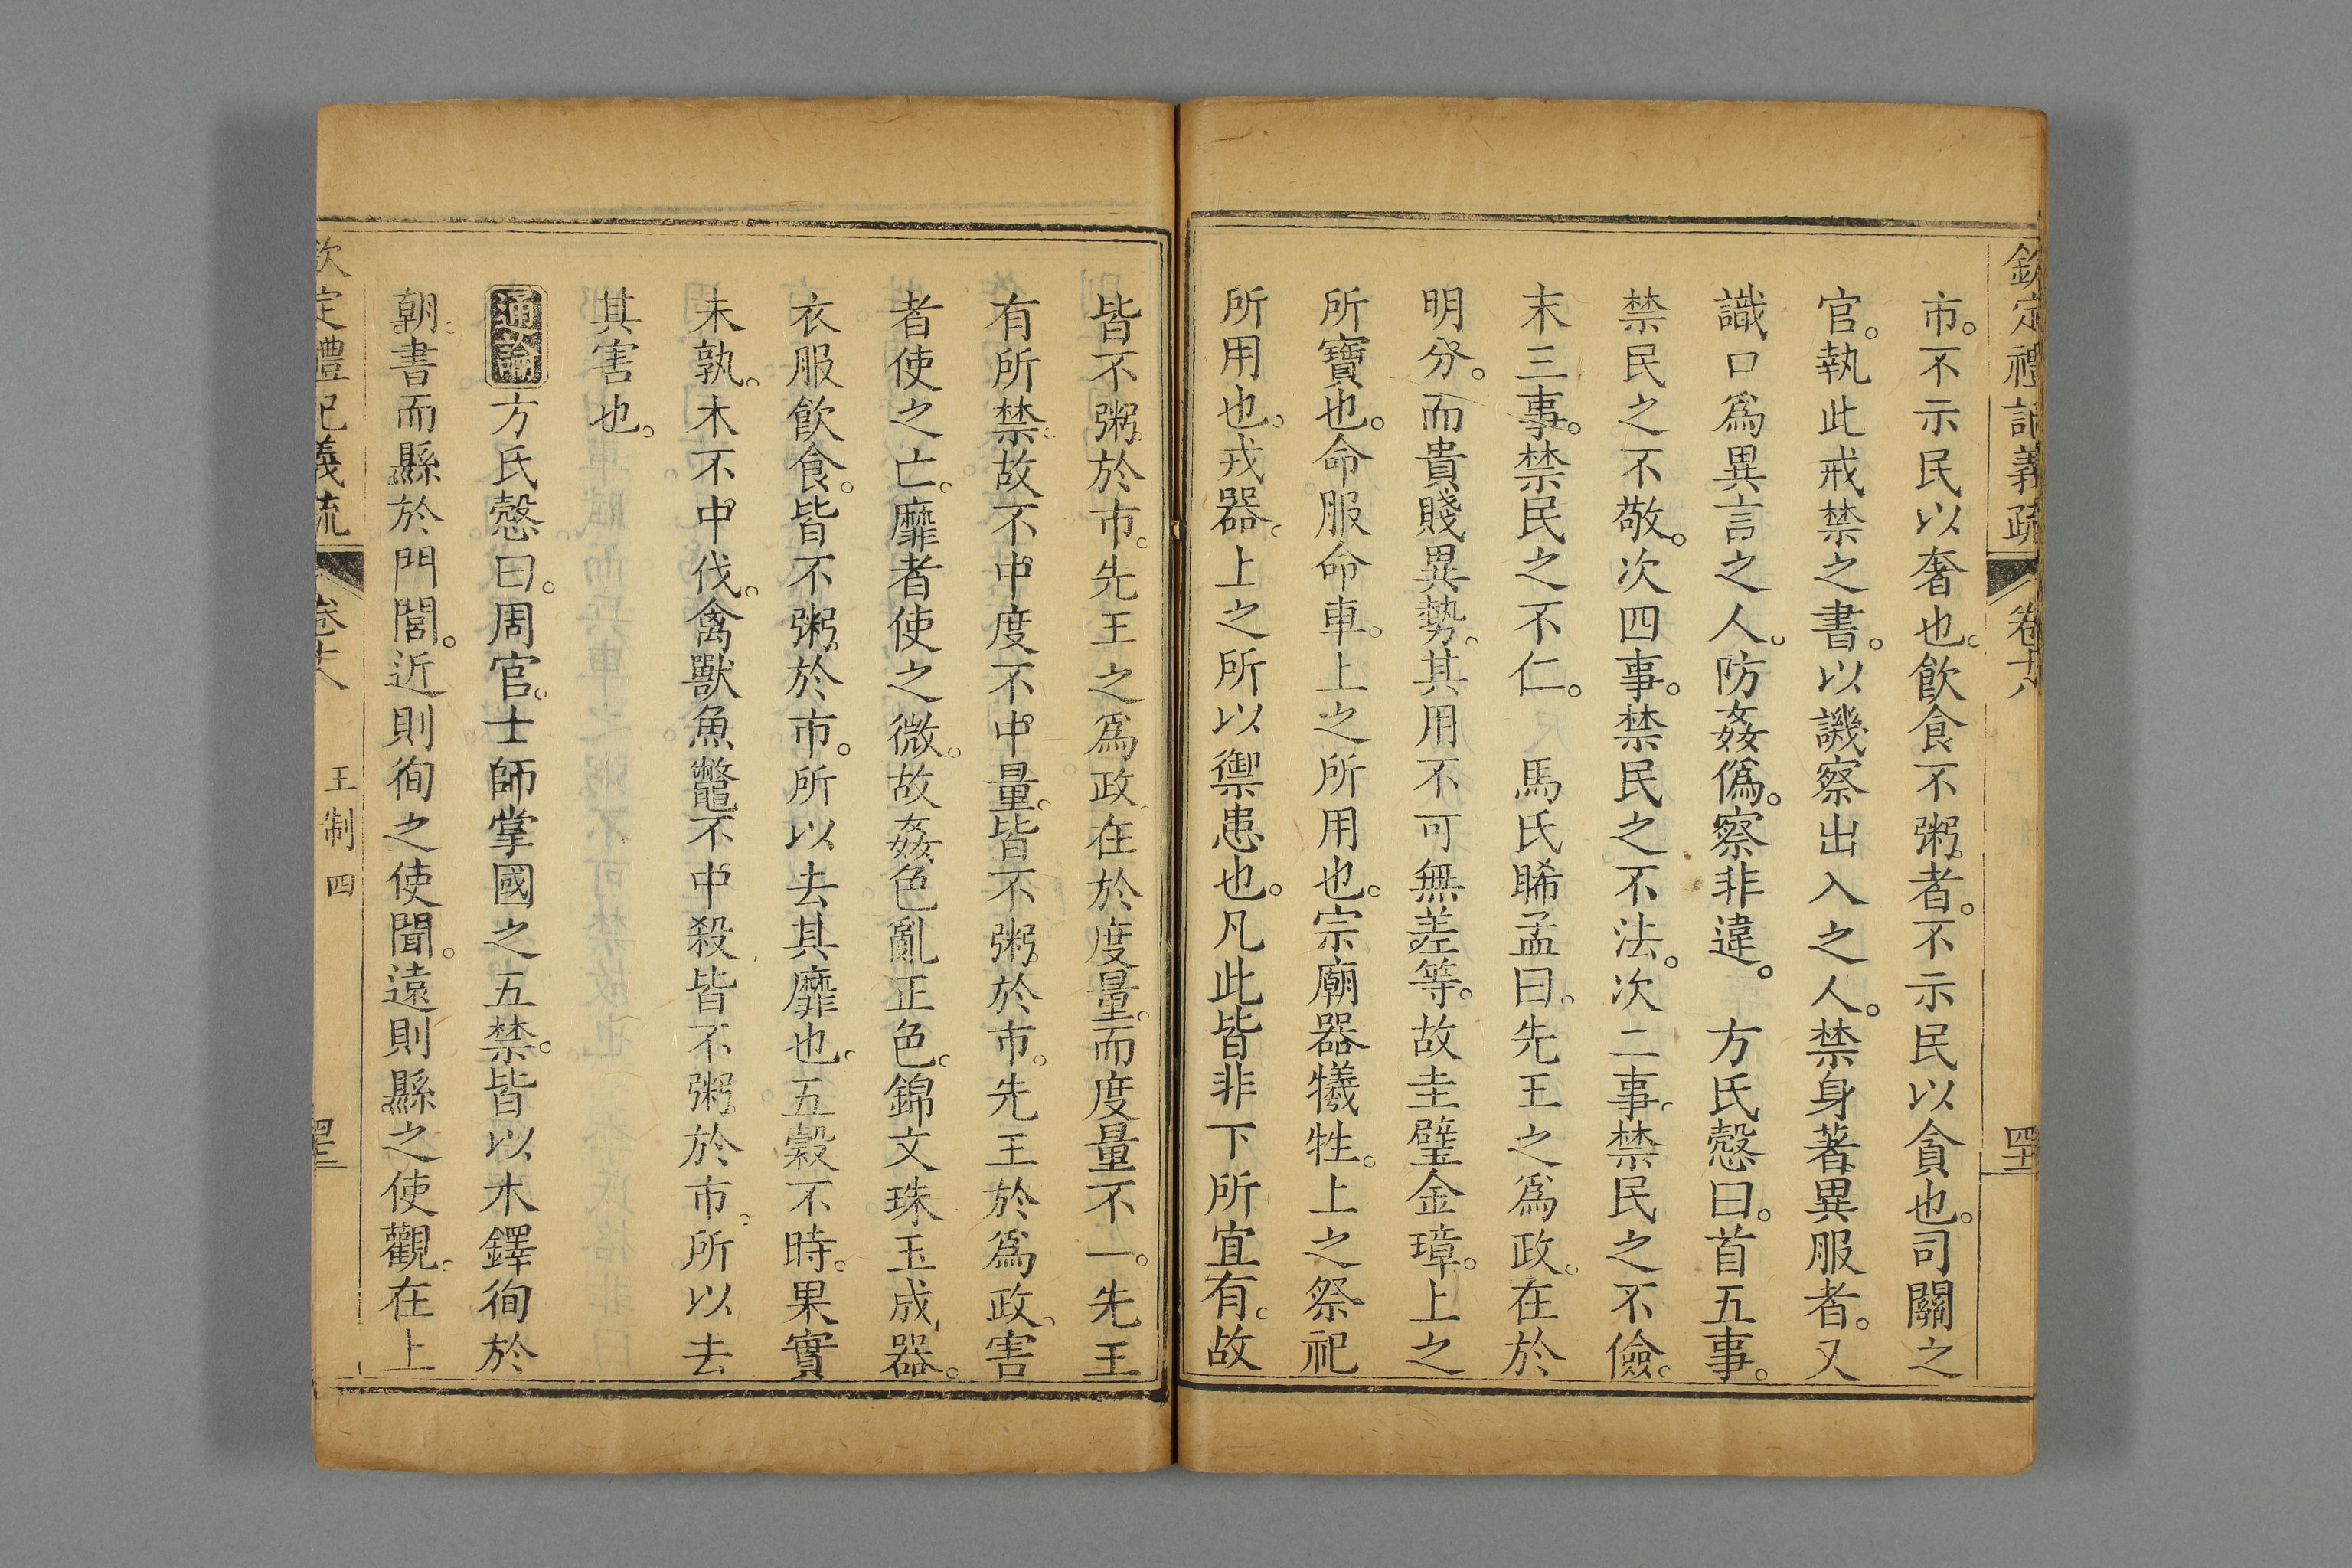 欽定禮記義疏 卷十八
市。不示民以奢也。飲食不粥者。不示民以貪也。司關之
官。執此戒禁之書。以譏察出入之人。禁身著異服者。又
識口爲異言之人。防姦僞。察非違。 方氏慤曰。首五事。
禁民之不敬。次四事。禁民之不法。次二事。禁民之不儉。
末三事。禁民之不仁。 馬氏睎孟曰。先王之爲政。在於
明分。而貴賤異勢。其用不可無差等。故圭璧金璋。上之
所寶也。命服命車。上之所用也。宗廟器犧牲。上之祭祀
所用也。戎器。上之所以禦患也。凡此皆非下所宜有。故
皆不粥於市。先王之爲政。在於度量。而度量不一。先王
有所禁。故不中度不中量。皆不粥於市。先王於爲政。害
者使之亡。靡者使之微。故姦色亂正色。錦文珠玉成器。
衣服飲食。皆不粥於市。所以去其靡也。五穀不時。果實
未孰。木不中伐。禽獸魚鼈不中殺皆不粥於市。所以去
其害也。
通論方氏慤曰。周官。士師掌國之五禁。皆以木鐸徇於
朝。書而縣於門閭。近則徇之使聞。遠則縣之使觀。在上
欽定禮記義疏 卷十八 王制 四